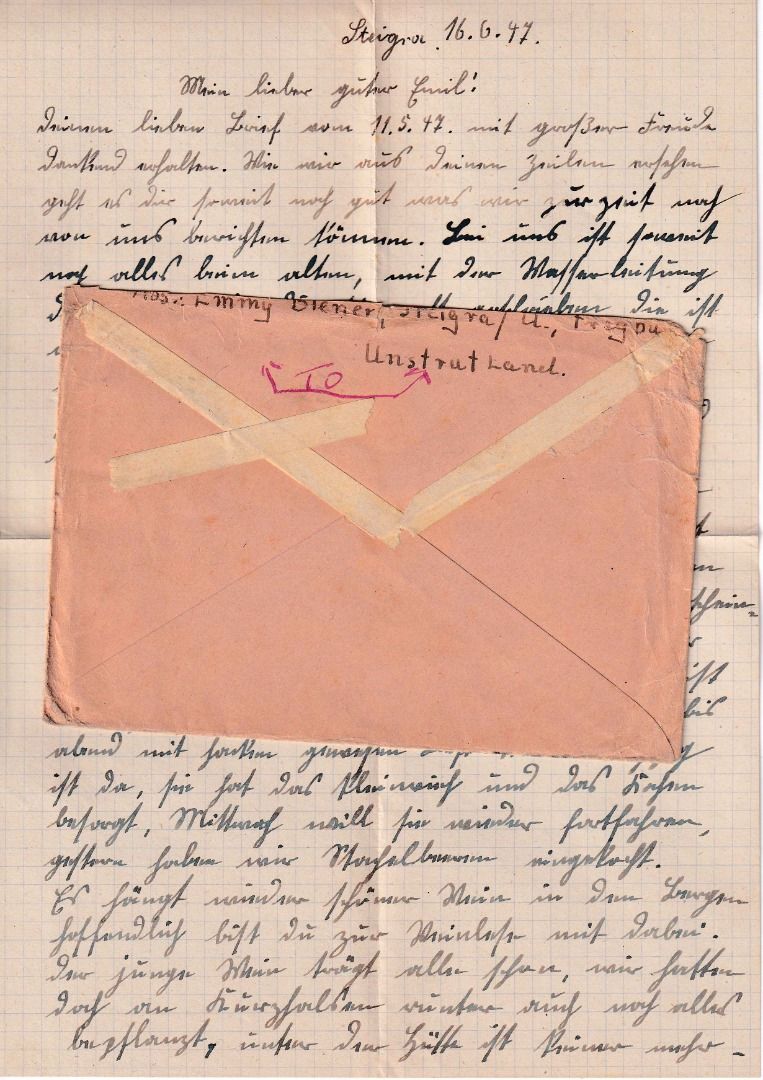 Steigra 16.6.47.
Mein lieber guter Emil!
Deinen lieben Brief vom 11.5.47. mit großer Freude
dankend erhalten. Wie wir aus deinen Zeilen ersehen
geht es dir soweit noch gut was wir zur zeit noch
von uns berichten können. Bei uns ist soweit
noch alles beim alten, mit der Wasserleitung
die ist
Abs.: Emmy Steigra / U.,
Unstrut Land.
TO
schein-
ist
bis
abend mit hacken gewesen
ist da, sie hat das Kleinvieh und das Kochen
besorgt, Mittwoch will sie wieder fortfahren,
gestern haben wir Stachelbeeren eingekocht.
Es hängt wieder schöner Wein in den Bergen
hoffendlich bist du zur Weinlese mit dabei.
Der junge Wein trägt alle schon, wir hatten
doch an Kurzhalsen runter auch noch alles
bepflanzt, unter der Hütte ist keiner mehr